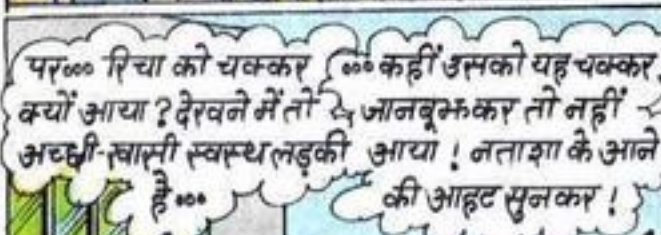 पर००० रिचा को चक्कर
क्यों आया ? देखने में तो
अच्छी-खासी स्वस्थ लड़की
है०००
००० कहीं उसको यह चक्कर
जानबूझकर तो नहीं
आया ! नताशा के आने
की आहट सुनकर !